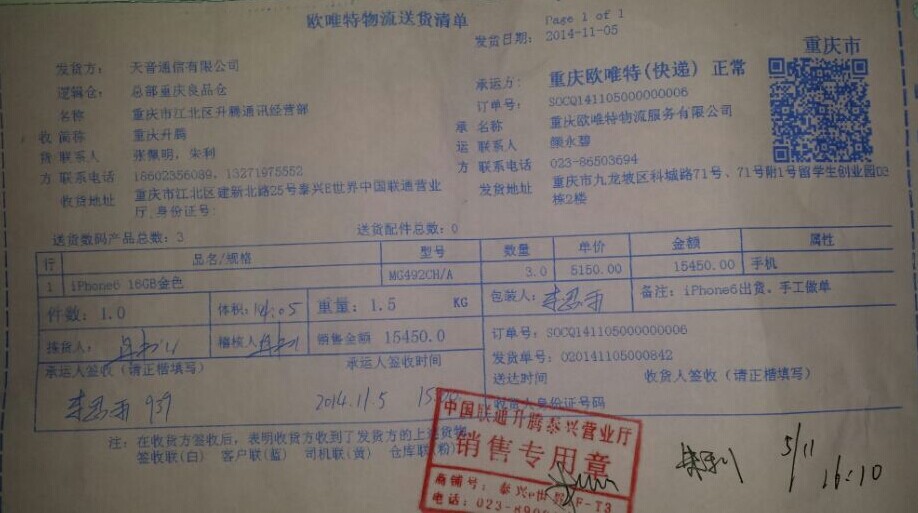 欧唯特物流送货清单
Page 1 of 1
发货日期: 2014-11-05
重庆市
发货方: 天音通信有限公司
逻辑仓: 总部重庆良品仓
承运方: 重庆欧唯特(快递) 正常
订单号: SOCQ141105000000006
收货方
名称 重庆市江北区升腾通讯经营部
简称 重庆升腾
联系人 张佩明,朱利
联系电话 18602356089, 13271975552
收货地址 重庆市江北区建新北路25号泰兴E世界中国联通营业
厅,身份证号:
承运方
名称: 重庆欧唯特物流服务有限公司
联系人: 颜永碧
联系电话: 023-86503694
发货地址: 重庆市九龙坡区科城路71号、71号附1号留学生创业园D2
栋2楼
送货数码产品总数: 3
送货配件总数: 0
行 品名/规格 型号 数量 单价 金额 属性
1 iPhone6 16GB金色 MG492CH/A 3.0 5150.00 15450.00 手机
件数: 1.0 体积: 重量: 1.5 KG 包装人: 备注: iPhone6出货、手工做单
拣货人: 稽核人 销售金额 15450.0
订单号: SOCQ141105000000006
发货单号: 020141105000842
承运人签收 (请正楷填写) 承运人签收时间
送达时间 收货人签收 (请正楷填写)
939 2014.11.5
收货人身份证号码
注: 在收货方签收后, 表明收货方收到了发货方的上述货物
签收联(白) 客户联(蓝) 司机联(黄) 仓库联(粉)
中国联通升腾泰兴营业厅
销售专用章
商铺号: 泰兴e世界 F-T3
电话: 023-890
5/11
16:10